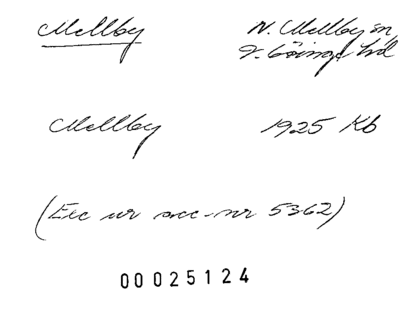 Mellby
N. Mellby sn
V. Göinge hd
Mellby
1925 Kb
(Exc ur acc-nr 5362)
00025124